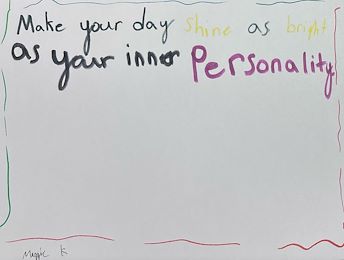 Make your day shine as bright
as your inner Personality
Maggie K